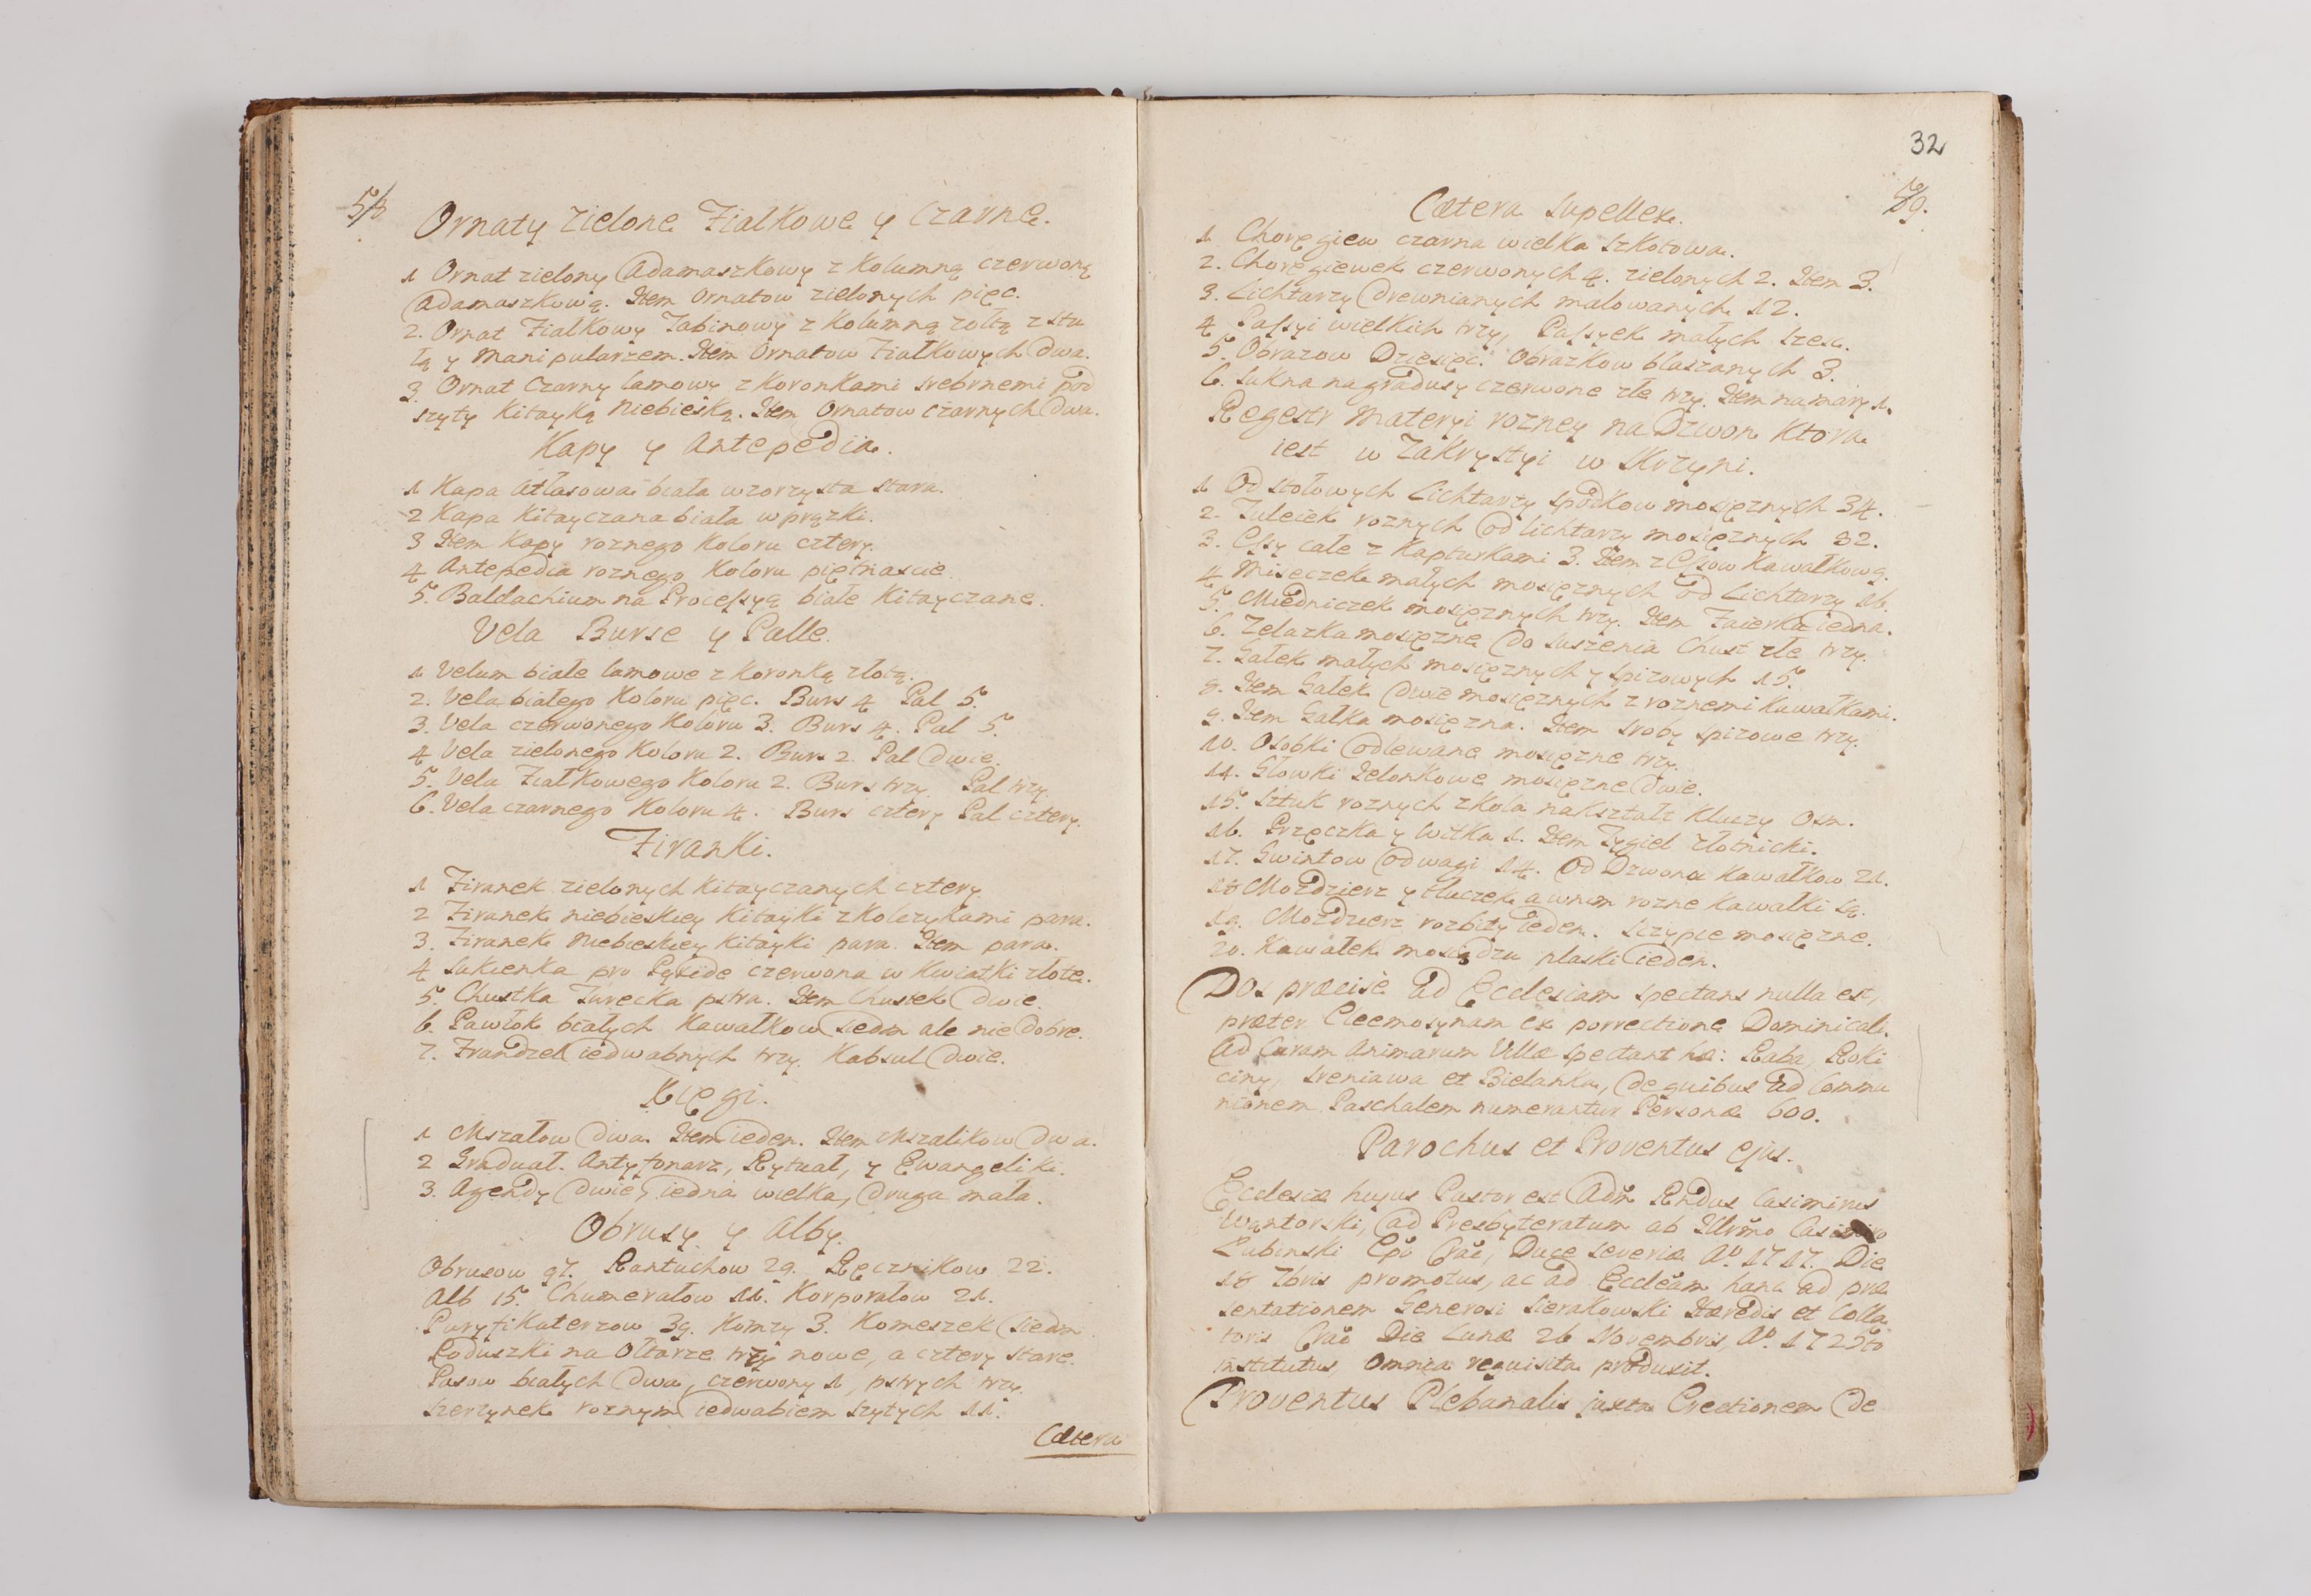 58
Ornaty zielone Fiałkowe y czarne.
1 Ornat zielony Adamaszkowy z kolumną czerwoną
Adamaszkową. Item Ornatow zielonych pięc.
2. Ornat Fiałkowy Tabinowy z kolumną zołtą z stu
łą y Manipularzem. Item Ornatow Fiałkowych dwa.
3. Ornat Czarny lamowy z koronkami srebrnemi pod
szyty Kitayką Niebieską. Item Ornatow czarnych dwa.
Kapy y Antepedia.
1 Kapa Atłasowa biała wzorzysta stara.
2 Kapa Kitayczana biała w prązki.
3 Item Kapy roznego Koloru cztery.
4 Antepedia roznego Koloru piętnascie.
5. Baldachium na Processyą białe Kitayczane.
Vela Burse y Palle.
1 Velum białe lamowe z koronką złotą.
2. Vela białego Koloru pięc. Burs 4 Pal 5.
3. Vela czerwonego Koloru 3. Burs 4. Pal 5.
4 Vela zielonego Koloru 2. Burs 2. Pal dwie.
5. Vela Fiałkowego Koloru 2. Burs trzy. Pal trzy.
6. Vela czarnego Koloru 4. Burs cztery Pal cztery.
Firanki.
1 Firanek zielonych Kitayczanych cztery.
2 Firanek niebieskiey Kitayki z kolczykami para.
3. Firanek Niebieskiey Kitayki para. Item para.
4 Sukienka pro Pyxide czerwona w kwiatki złote.
5. Chustka Turecka pstra. Item Chustek dwie.
6. Pawłok białych Kawałkow siedm ale nie dobre.
7. Frandzel iedwabnych trzy. Kabsul dwie.
Xięgi.
1 Mszałow dwa. Item ieden. Item Mszalikow dwa.
2 Graduał. Antyfonarz, Rytuał, y Ewangeliki.
3. Agendy dwie, iedna wielka, druga mała.
Obrusy y Alby.
Obrusow 97. Rantuchow 29. Ręcznikow 22.
Alb 15. Chumerałow 11. Korporałow 21.
Puryfikaterzow 39. Komzy 3. Komeszek siedm
Poduszki na Ołtarze trzy nowe, a cztery stare.
Pasow białych dwa, czerwony 1, pstrych trzy.
Szerzynek roznym iedwabiem szytych 11.
Cætera
32
59.
Cætera supellex.
1 Choręgiew czarna wielka szkotowa.
2. Choręgiewek czerwonych 4. zielonych 2. Item 3.
3. Lichtarzy drewnianych malowanych 12.
4 Passyi wielkich trzy, Passyek małych szesc.
5. Obrazow Dziesięc. Obrazkow blaszanych 3.
6. Sukna na gradusy czerwone złe trzy. Item na mary 1.
Regestr Materyi rozney na Dzwon Ktora
iest w Zakrystyi w Skrzyni.
1 Od stołowych Lichtarzy spodkow mosięznych 34.
2. Tuleiek roznych od lichtarzy mosięznych 32.
3. Essy całe z Kapturkami 3. Item z Essow Kawałkow 9.
4 Miseczek małych mosięznych od Lichtarzy 16.
5. Miedniczek mosięznych trzy. Item Faierka iedna.
6. Zelazka mosięzne do suszenia Chust złe trzy.
7. Gałek małych mosięznych y spizowych 15.
8. Item Gałek dwie mosięznych z roznemi Kawałkami.
9. Item Gałka mosięzna. Item sroby spizowe trzy.
10. Osobki odlewane mosięzne trzy.
14. Głowki Jelonkowe mosięzne dwie.
15. Sztuk roznych z koła nakształt Kluczy Osm.
16. Przęczka y Witka 1. Item Tygiel złotnicki.
17. Gwintow od wagi 14. Od Dzwona Kawałkow 21.
18 Mozdzierz y tłuczek a w nim rozne Kawałki są.
19. Mozdzierz rozbity ieden. Szczypce mosięzne.
20. Kawałek mosiądzu płaski ieden.
Dos præcisè ad Ecclesiam spectans nulla est,
præter Eleemosynam ex porrectione Dominicali.
Ad Curam Animarum Villæ spectant hæ: Raba, Roki
ciny, Sieniawa et Bielanka, de quibus ad Commu
nionem Paschalem numerantur Personæ 600.
Parochus et Proventus ejus.
Ecclesiæ hujus Pastor est Adm Rndus Casimirus
Wątorski, ad Presbyteratum ab Illrmo Casimiro
Łubinski Epo Crac, Duce Severiæ Ao. 1717. Die
18 7bris promotus, ac ad Eccleam hanc ad præ
sentationem Generosi Sierakowski Hæredis et Colla
toris Crac Die Lunæ 26 Novembris, Ao. 1725to
institutus, omnia requisita produxit.
Proventus Plebanalis juxta Erectionem de